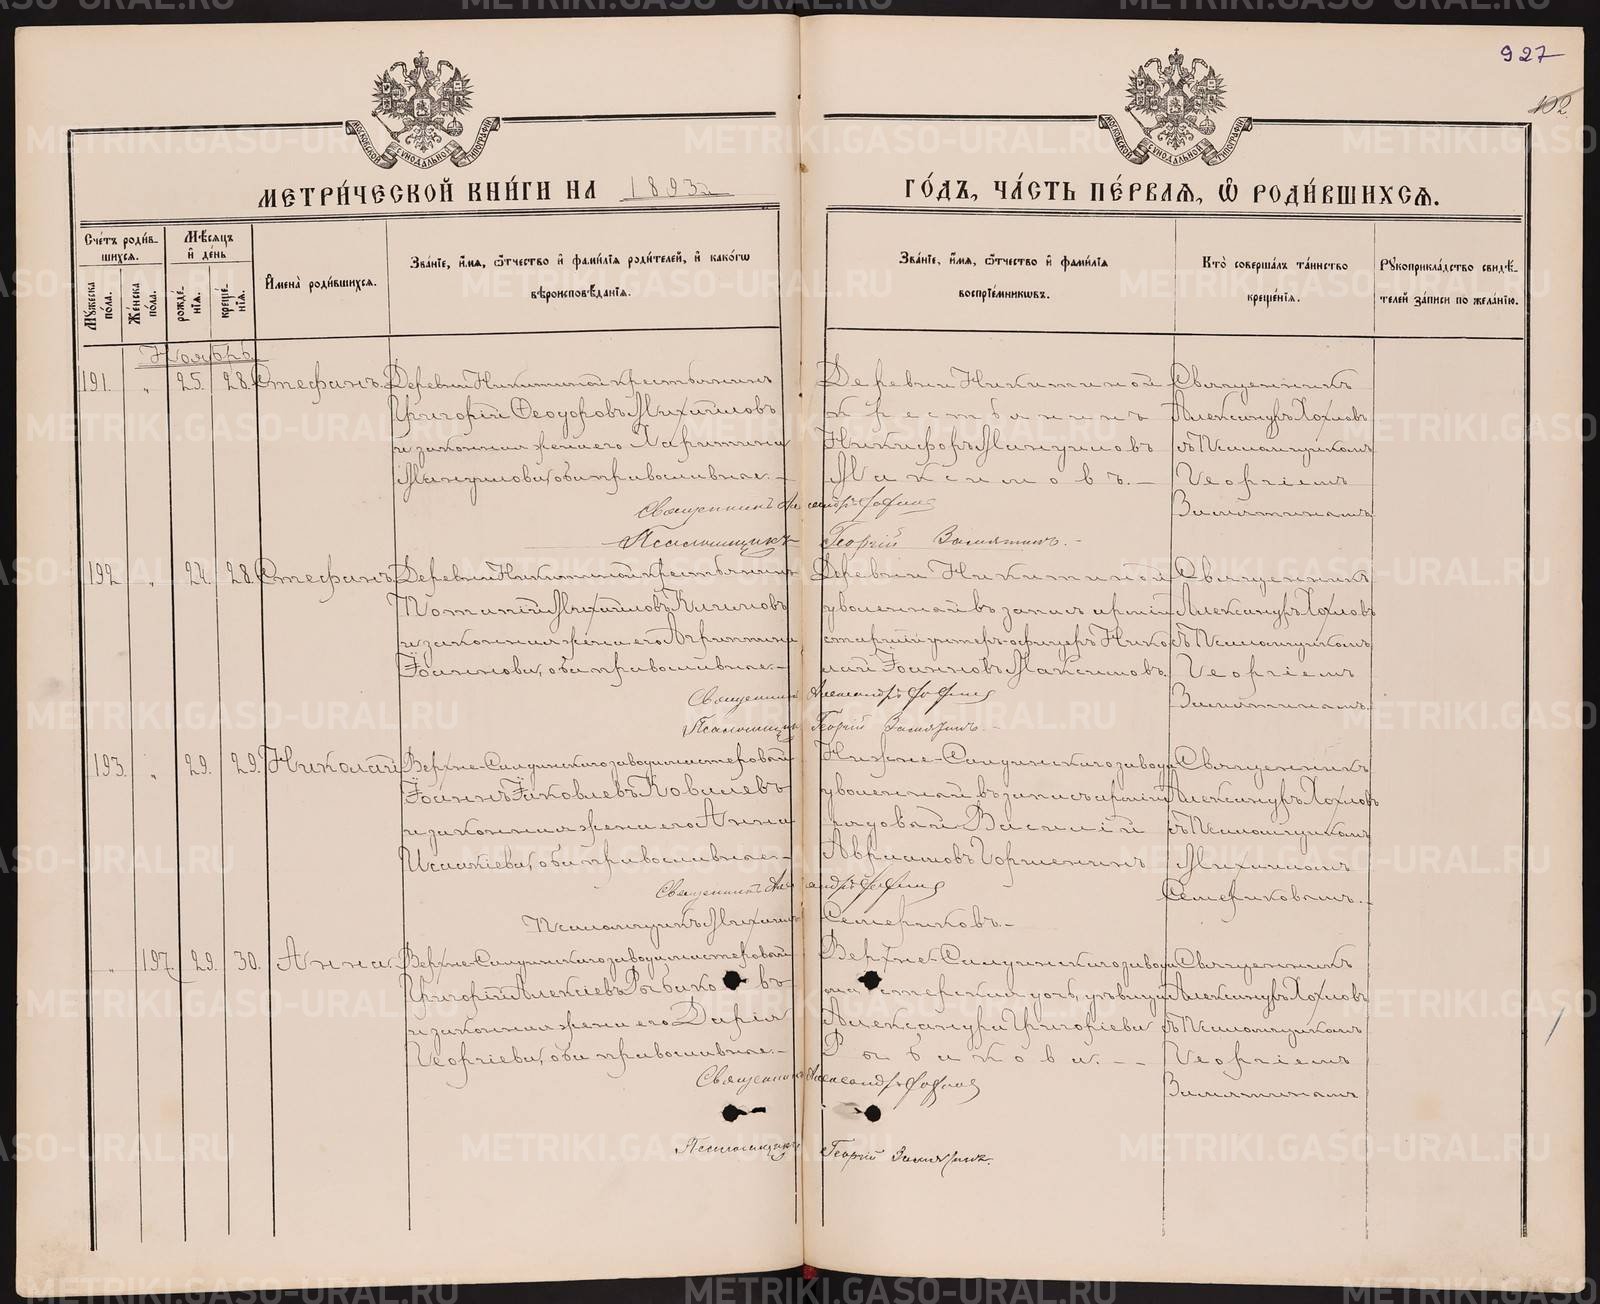 927
102
МОСКОВСКОЙ СѴНОДАЛЬНОЙ ТИПОГРАФІИ
МОСКОВСКОЙ СѴНОДАЛЬНОЙ ТИПОГРАФІИ
МЕТРИ́ЧЕСКОЙ КНИ́ГИ НА 1893й
ГО́ДЪ, ЧА́СТЬ ПЕ́РВАЯ, Ѡ҆ РОДИ́ВШИХСЯ.
Сче́тъ роди́в-
шихся.
Мꙋ́жеска по́ла.
Же́нска по́ла.
Мѣ́сяцъ
и҆ де́нь
рожде́-
нїя.
креще́-
нїя.
И҆мена̀ роди́вшихся.
Зва́нїе, и҆́мя, ѻ҆́тчество и҆ фами́лїя роди́телей, и҆ како́гѡ
вѣроисповѣ́данїя.
Зва́нїе, и҆́мя, ѻ҆́тчество и҆ фами́лїя
воспрїе́мникѡвъ.
Кто̀ соверша́лъ та́инство
креще́нїя.
Рꙋкоприкла́дство свидѣ́-
телей за́писи по жела́нїю.
Ноябрь
191. " 25. 28. Стефанъ. Деревни Никитиной крестьянинъ
Григорій Ѳеодоровъ Михайловъ
и законная жена его Харитина
Мануилова, оба православные.-
Деревни Никитиной
крестьянинъ
Никифоръ Мануиловъ
Максимовъ.-
Священникъ
Александръ Хохловъ
съ Псаломщикомъ
Георгіемъ
Замятинымъ
Священникъ Александръ Хохловъ
Псаломщикъ Георгій Замятинъ.-
192 " 24. 28. Стефанъ. Деревни Никитиной крестьянинъ
Михайловъ Климовъ
и законная жена его Агриппина
Іоаннова, оба православные.-
Деревни Никитиной
уволенный въ запасъ арміи
старшій унтеръ-офицеръ Нико
лай Іоанновъ Максимовъ.
Священникъ
Александръ Хохловъ
съ Псаломщикомъ
Георгіемъ
Замятинымъ.
Священникъ Александръ Хохловъ
Псаломщикъ Георгій Замятинъ.-
193. " 29. 29. Николай Верхне-Салдинскаго завода мастеровой
Іоаннъ Іаковлевъ Ковалевъ
и законная жена его Анна
Исаакіева, оба православные.-
Нижне-Салдинскаго завода
уволенный въ запасъ арміи
рядовой Василій
Авраамовъ Горшенинъ
Священникъ
Александръ Хохловъ
съ Псаломщикомъ
Михаиломъ
Семериковымъ.-
Священникъ Александръ Хохловъ
Псаломщикъ Михаилъ Семериковъ.-
" 197. 29. 30. Анна. Верхне-Салдинскаго завода мастеровой
Григорій Алексіевъ Рыбаковъ-
и законная жена его Дарія
Георгіева, оба православные.-
Верхне-Салдинскаго завода
мастерская дочь, дѣвица
Александра Григоріева
Рыбакова.--
Священникъ
Александръ Хохловъ
съ Псаломщикомъ
Георгіемъ
Замятинымъ
Священникъ Александръ Хохловъ
Псаломщикъ Георгій Замятинъ.
METRIKI.GASO-URAL.RU